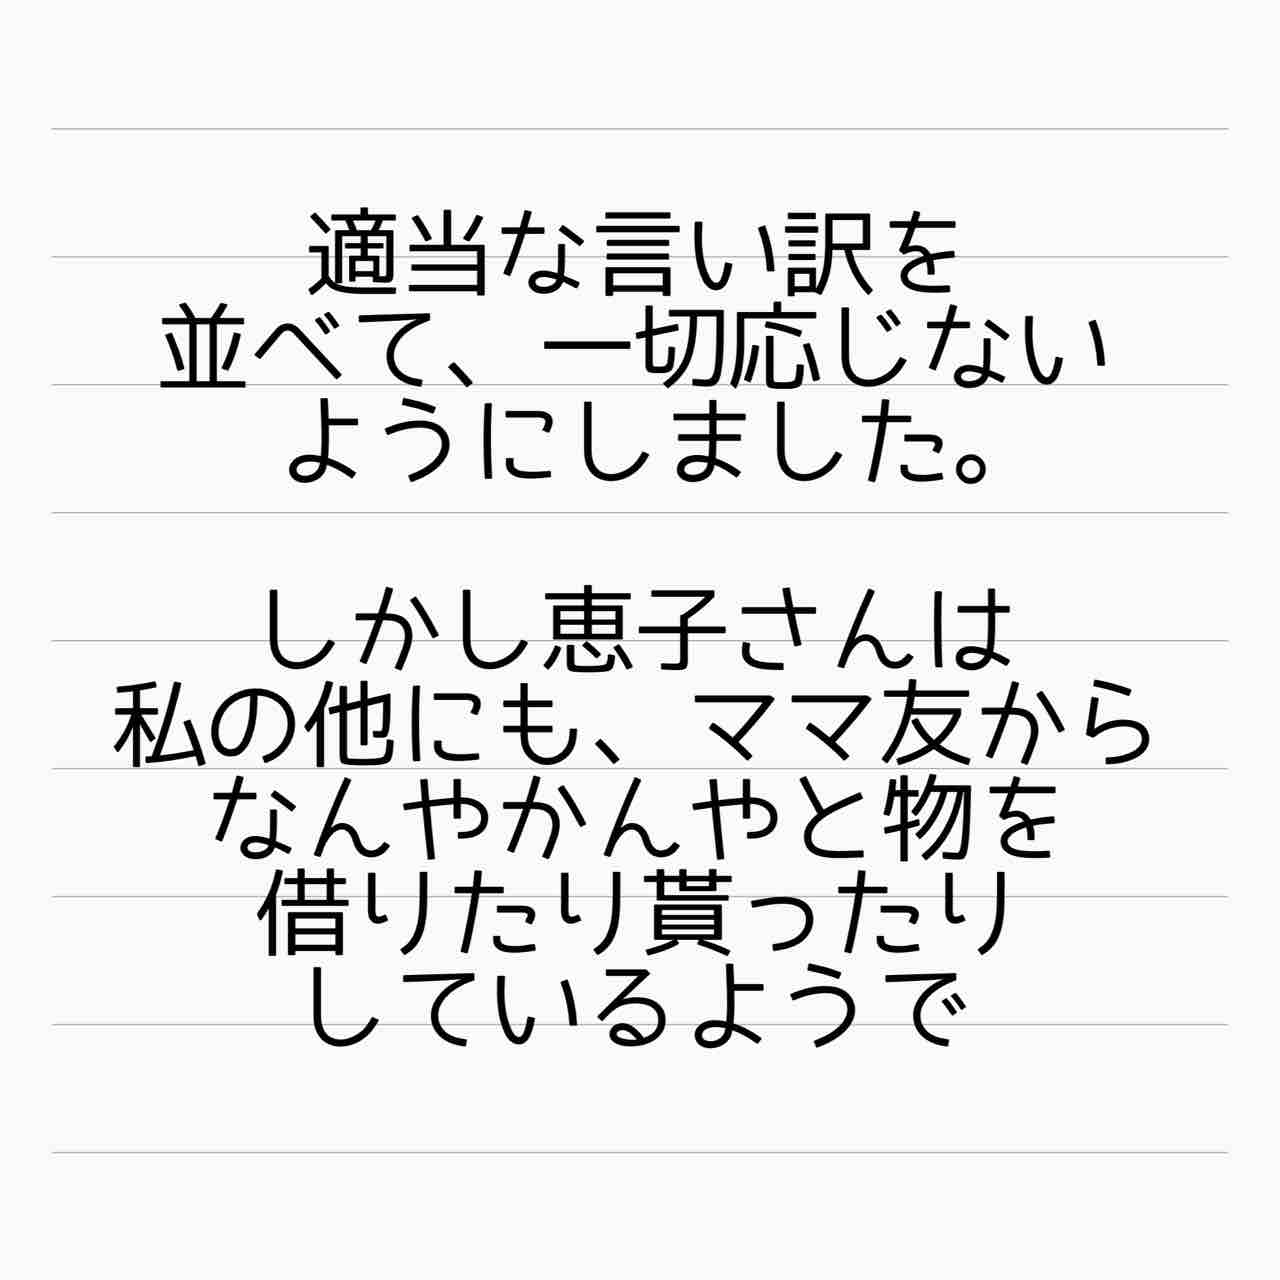 適当な言い訳を
並べて、一切応じない
ようにしました。
しかし恵子さんは
私の他にも、ママ友から
なんやかんやと物を
借りたり貰ったり
しているようで